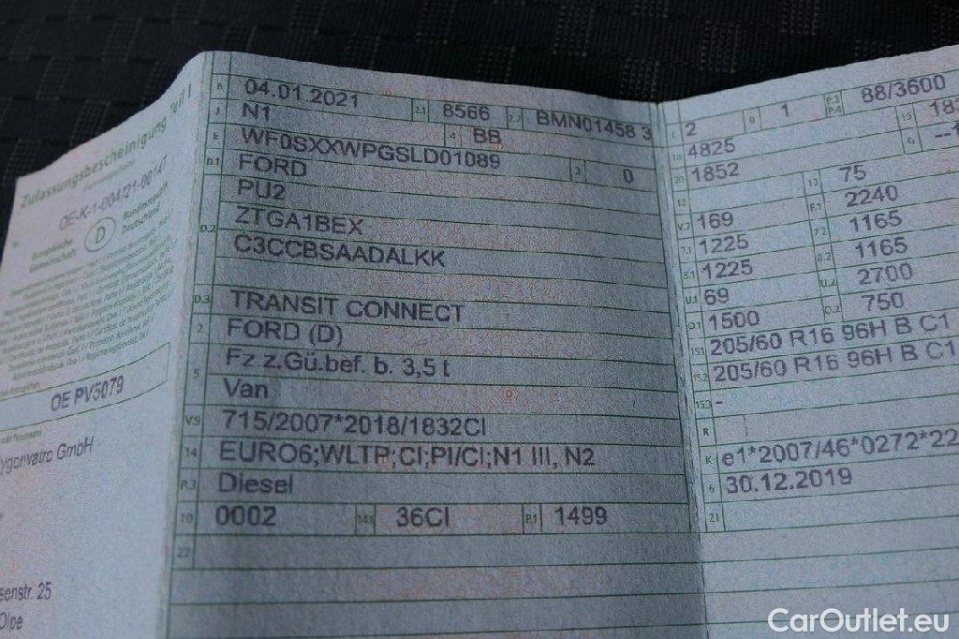 Zulassungsbescheinigung Teil I
OE-K-1-004/21-00147
Europäische
Gemeinschaft
D
Bundesrepublik
Deutschland
OE PV5079
ygonvatro GmbH
senstr. 25
Olpe
B 04.01.2021 2.1 8566 2.2 BMN01458 3
J N1 4 BB
E WF0SXXWPGSLD01089 3 0
D.1 FORD
PU2
D.2 ZTGA1BEX
C3CCBSAADALKK
D.3 TRANSIT CONNECT
2 FORD (D)
5 Fz.z.Gü.bef. b. 3,5 t
Van
V.9 715/2007*2018/1832CI
14 EURO6;WLTP;CI;PI/CI;N1 III, N2
P.3 Diesel
10 0002 14.1 36CI P.1 1499
22
L 2 9 1 P.2 P.4 88/3600
18 4825 19 183
20 1852 G --1
12 13 75
V.7 169 F.1 2240
7.1 1225 7.2 1165
8.1 1225 8.2 1165
U.1 69 U.2 2700
O.1 1500 O.2 750
15.1 205/60 R16 96H B C1
15.2 205/60 R16 96H B C1
15.3 -
R
K e1*2007/46*0272*22
6 30.12.2019
21
CarOutlet.eu